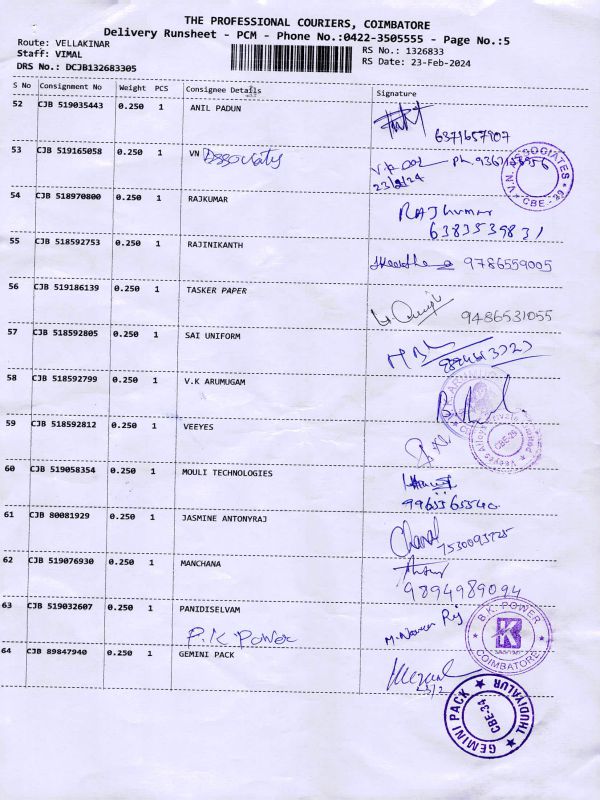 THE PROFESSIONAL COURIERS, COIMBATORE
Delivery Runsheet - PCM - Phone No.:0422-3505555 - Page No.:5
Route: VELLAKINAR
RS No.: 1326833
Staff: VIMAL
RS Date: 23-Feb-2024
DRS No.: DCJB132683305
S No Consignment No Weight PCS Consignee Details Signature
52 CJB 519035443 0.250 1 ANIL PADUN
6371657907
53 CJB 519165058 0.250 1 VN Associats
Ph.
23/2/24
V.N. ASSOCIATES CBE-29
54 CJB 518970800 0.250 1 RAJKUMAR Rajkumar
6383539831
55 CJB 518592753 0.250 1 RAJINIKANTH 9786559005
56 CJB 519186139 0.250 1 TASKER PAPER 9486531055
57 CJB 518592805 0.250 1 SAI UNIFORM
58 CJB 518592799 0.250 1 V.K ARUMUGAM
59 CJB 518592812 0.250 1 VEEYES
Veeyes Alloys Private Limited CBE-29
60 CJB 519058354 0.250 1 MOULI TECHNOLOGIES
9965365540
61 CJB 80081929 0.250 1 JASMINE ANTONYRAJ
7530093725
62 CJB 519076930 0.250 1 MANCHANA
9894989094
63 CJB 519032607 0.250 1 PANIDISELVAM
P.K Power M. Naveen Raj
B.K. POWER BK COIMBATORE
64 CJB 89847940 0.250 1 GEMINI PACK
23/2
GEMINI PACK THUDIYALUR CBE-34